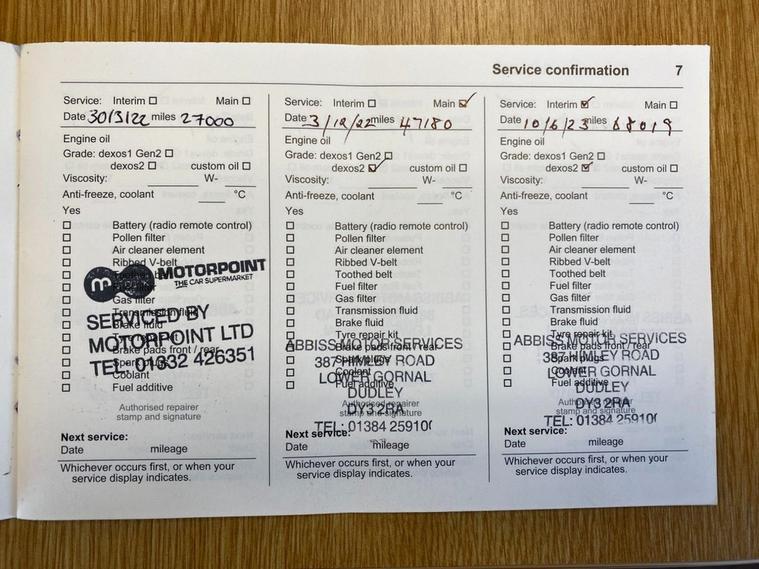 Service confirmation 7
Service: Interim ☐ Main ☐
Date 30/3/22 miles 27000
Engine oil
Grade: dexos1 Gen2 ☐
dexos2 ☐ custom oil ☐
Viscosity: W-
Anti-freeze, coolant °C
Yes
☐ Battery (radio remote control)
☐ Pollen filter
☐ Air cleaner element
☐ Ribbed V-belt
☐ Toothed belt
☐ Fuel filter
☐ Gas filter
☐ Transmission fluid
☐ Brake fluid
☐ Brake pads front / rear
☐ Spark plugs
☐ Coolant
☐ Fuel additive
m MOTORPOINT
THE CAR SUPERMARKET
SERVICED BY
MOTORPOINT LTD
TEL: 01332 426351
Authorised repairer
stamp and signature
Next service:
Date mileage
Whichever occurs first, or when your
service display indicates.
Service: Interim ☐ Main ☑
Date 3/12/22 miles 47180
Engine oil
Grade: dexos1 Gen2 ☐
dexos2 ☑ custom oil ☐
Viscosity: W-
Anti-freeze, coolant °C
Yes
☐ Battery (radio remote control)
☐ Pollen filter
☐ Air cleaner element
☐ Ribbed V-belt
☐ Toothed belt
☐ Fuel filter
☐ Gas filter
☐ Transmission fluid
☐ Brake fluid
☐ Tyre repair kit
☐ Brake pads front / rear
☐ Spark plugs
☐ Coolant
☐ Fuel additive
ABBISS MOTOR SERVICES
387 HIMLEY ROAD
LOWER GORNAL
DUDLEY
DY3 2RA
TEL: 01384 259100
Authorised repairer
stamp and signature
Next service:
Date mileage
Whichever occurs first, or when your
service display indicates.
Service: Interim ☑ Main ☐
Date 10/6/23 miles 68019
Engine oil
Grade: dexos1 Gen2 ☐
dexos2 ☑ custom oil ☐
Viscosity: W-
Anti-freeze, coolant °C
Yes
☐ Battery (radio remote control)
☐ Pollen filter
☐ Air cleaner element
☐ Ribbed V-belt
☐ Toothed belt
☐ Fuel filter
☐ Gas filter
☐ Transmission fluid
☐ Brake fluid
☐ Tyre repair kit
☐ Brake pads front / rear
☐ Spark plugs
☐ Coolant
☐ Fuel additive
ABBISS MOTOR SERVICES
387 HIMLEY ROAD
LOWER GORNAL
DUDLEY
DY3 2RA
TEL: 01384 259100
Authorised repairer
stamp and signature
Next service:
Date mileage
Whichever occurs first, or when your
service display indicates.